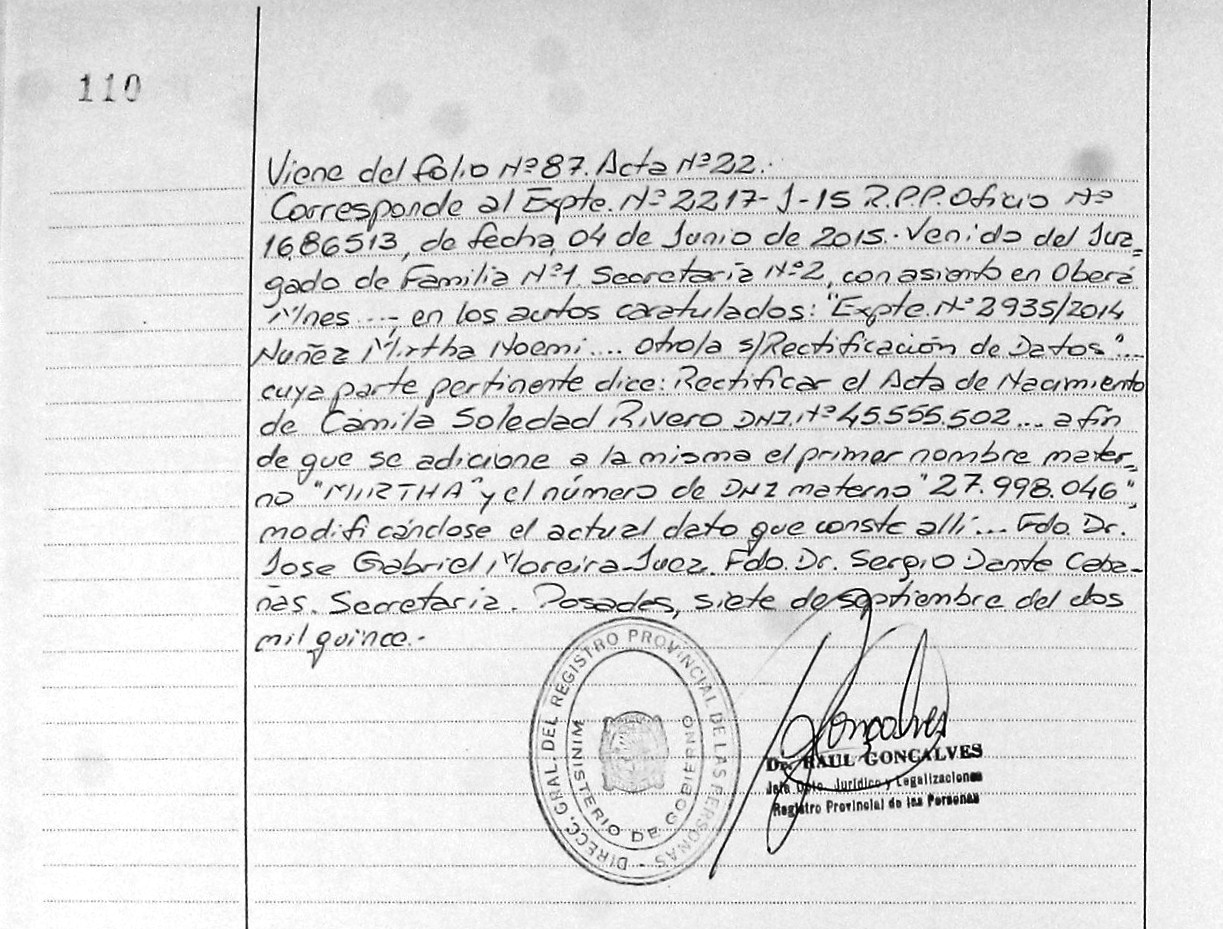 110
Viene del folio Nº 87. Acta Nº 22.
Corresponde al Expte. Nº 2217-J-15 R.P.P. Oficio Nº
1686513, de fecha, 04 de Junio de 2015. Venido del Juz-
gado de Familia Nº 1. Secretaria Nº 2, con asiento en Oberá
Mnes ..., en los autos caratulados: "Expte. Nº 2935/2014
Nuñez Mirtha Noemi.... Otro/a s/Rectificación de Datos"...
cuya parte pertinente dice: Rectificar el Acta de Nacimiento
de Camila Soledad Rivero DNI. Nº 45.555.502... a fin
de que se adicione a la misma el primer nombre mater-
no "MIRTHA" y el número de DNI materno "27.998.046",
modificándose el actual dato que conste allí... Fdo. Dr.
Jose Gabriel Moreira-Juez. Fdo. Dr. Sergio Dante Caba-
ñas. Secretaria. Posadas, siete de septiembre del dos
mil quince.-
DIRECC. GRAL. DEL REGISTRO PROVINCIAL DE LAS PERSONAS
MINISTERIO DE GOBIERNO
Goncalves
Dr. RAUL GONCALVES
Jefe Dpto. Jurídico y Legalizaciones
Registro Provincial de las Personas